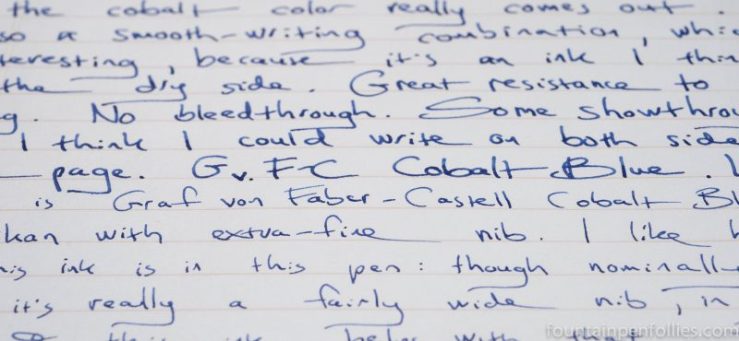 the cobalt color really comes out.
so a smooth-writing combination, whi
teresting, because it's an ink I thin
the dry side. Great resistance to
g. No bleedthrough. Some showthrou
I think I could write on both side
page. G.v.F-C Cobalt Blue.
is Graf von Faber-Castell Cobalt Bl
kan with extra-fine nib. I like h
is ink is in this pen: though nominall
it's really a fairly wide nib, in
this ink with that
fountainpenfollies.com